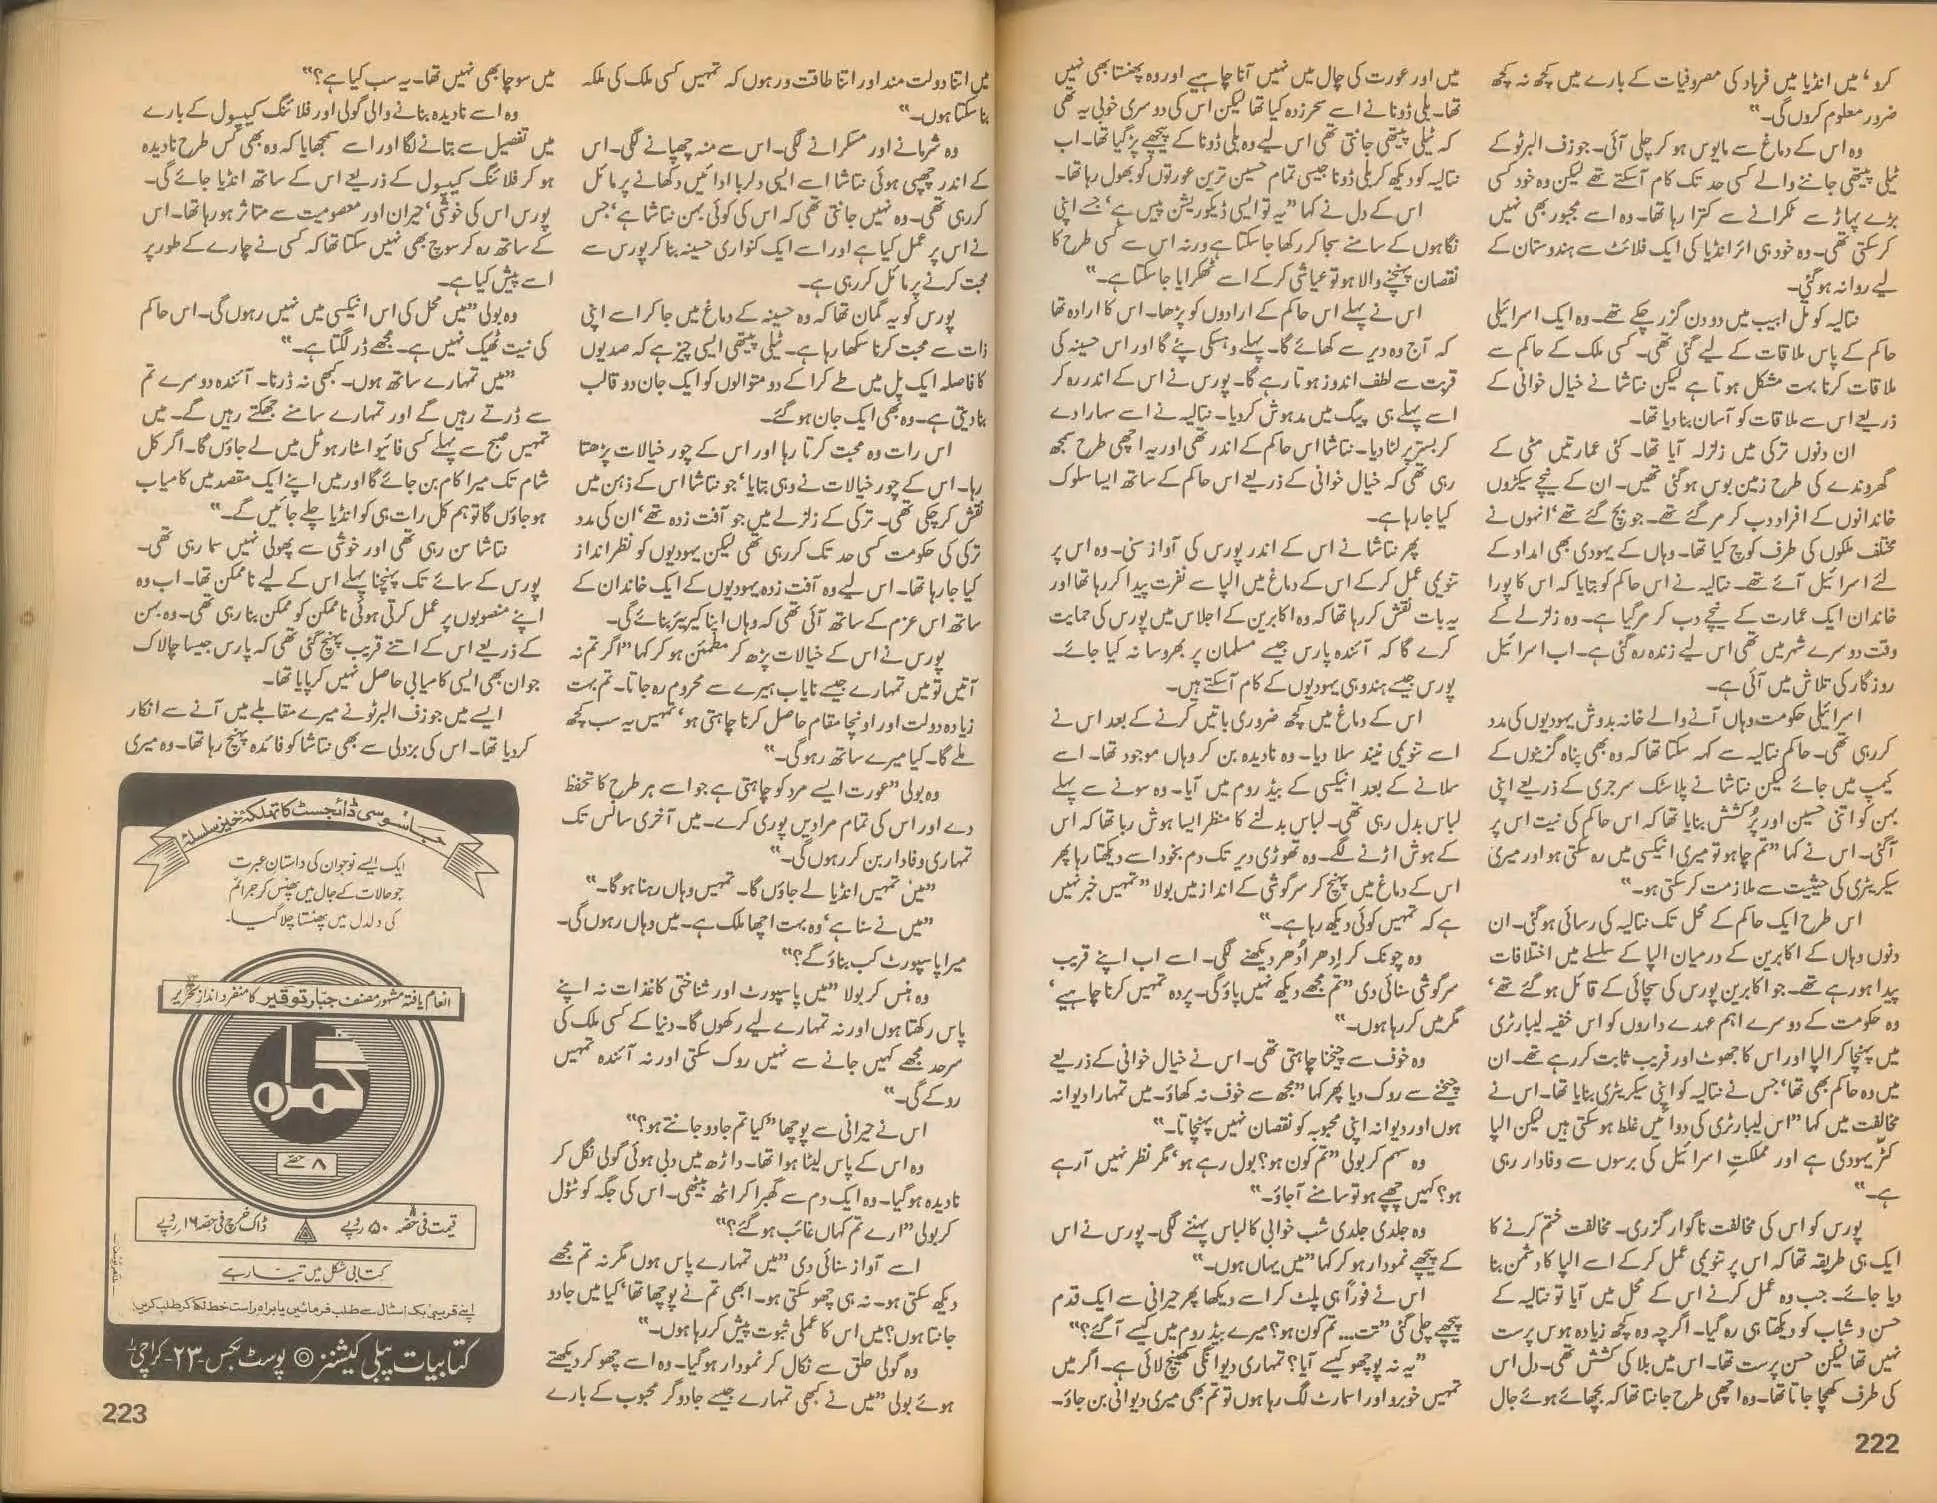 کرو‘ میں انڈیا میں فرہاد کی مصروفیات کے بارے میں کچھ نہ کچھ
ضرور معلوم کروں گی۔"
وہ اس کے دماغ سے مایوس ہو کر چلی آئی۔ جوزف البرٹو کے
ٹیلی پیتھی جاننے والے کسی حد تک کام آسکتے تھے لیکن وہ خود کسی
بڑے پہاڑ سے ٹکرانے سے کترا رہا تھا۔ وہ اسے مجبور بھی نہیں
کرسکتی تھی۔ وہ خود ہی ائر انڈیا کی ایک فلائٹ سے ہندوستان کے
لیے روانہ ہوگئی۔
نتالیہ کو تل ابیب میں دو دن گزر چکے تھے۔ وہ ایک اسرائیلی
حاکم کے پاس ملاقات کے لیے گئی تھی۔ کسی ملک کے حاکم سے
ملاقات کرنا بہت مشکل ہوتا ہے لیکن نتاشا نے خیال خوانی کے
ذریعے اس سے ملاقات کو آسان بنا دیا تھا۔
ان دنوں ترکی میں زلزلہ آیا تھا۔ کئی عمارتیں مٹی کے
گھروندے کی طرح زمین بوس ہوگئی تھیں۔ ان کے نیچے سیکڑوں
خاندانوں کے افراد دب کر مر گئے تھے۔ جو بچ گئے تھے‘ انہوں نے
مختلف ملکوں کی طرف کوچ کیا تھا۔ وہاں کے یہودی بھی امداد کے
لئے اسرائیل آئے تھے۔ نتالیہ نے اس حاکم کو بتایا کہ اس کا پورا
خاندان ایک عمارت کے نیچے دب کر مر گیا ہے۔ وہ زلزلے کے
وقت دوسرے شہر میں تھی اس لیے زندہ رہ گئی ہے۔ اب اسرائیل
روزگار کی تلاش میں آئی ہے۔
اسرائیلی حکومت وہاں آنے والے خانہ بدوش یہودیوں کی مدد
کررہی تھی۔ حاکم نتالیہ سے کہہ سکتا تھا کہ وہ بھی پناہ گزینوں کے
کیمپ میں جائے لیکن نتاشا نے پلاسٹک سرجری کے ذریعے اپنی
بہن کو اتنی حسین اور پُرکشش بنایا تھا کہ اس حاکم کی نیت اس پر
آگئی۔ اس نے کہا "تم چاہو تو میری انیکسی میں رہ سکتی ہو اور میری
سیکریٹری کی حیثیت سے ملازمت کرسکتی ہو۔"
اس طرح ایک حاکم کے محل تک نتالیہ کی رسائی ہوگئی۔ ان
دنوں وہاں کے اکابرین کے درمیان الپا کے سلسلے میں اختلافات
پیدا ہورہے تھے۔ جو اکابرین پورس کی سچائی کے قائل ہوگئے تھے‘
وہ حکومت کے دوسرے اہم عہدے داروں کو اس خفیہ لیبارٹری
میں پہنچا کر الپا اور اس کا جھوٹ اور فریب ثابت کررہے تھے۔ ان
میں وہ حاکم بھی تھا‘ جس نے نتالیہ کو اپنی سیکریٹری بنایا تھا۔ اس نے
مخالفت میں کہا "اس لیبارٹری کی دوائیں غلط ہوسکتی ہیں لیکن الپا
کٹّر یہودی ہے اور مملکتِ اسرائیل کی برسوں سے وفادار رہی
ہے۔"
پورس کو اس کی مخالفت ناگوار گزری۔ مخالفت ختم کرنے کا
ایک ہی طریقہ تھا کہ اس پر تنویمی عمل کرکے اسے الپا کا دشمن بنا
دیا جائے۔ جب وہ عمل کرنے اس کے محل میں آیا تو نتالیہ کے
حسن و شباب کو دیکھتا ہی رہ گیا۔ اگرچہ وہ کچھ زیادہ ہوس پرست
نہیں تھا لیکن حسن پرست تھا۔ اس میں بلا کی کشش تھی۔ دل اس
کی طرف کھچا جاتا تھا۔ وہ اچھی طرح جانتا تھا کہ بچھائے ہوئے جال
میں اور عورت کی چال میں نہیں آنا چاہیے اور وہ پھنستا بھی نہیں
تھا۔ بلی ڈونا نے اسے سحر زدہ کیا تھا لیکن اس کی دوسری خوبی یہ تھی
کہ ٹیلی پیتھی جانتی تھی اس لیے وہ بلی ڈونا کے پیچھے پڑ گیا تھا۔ اب
نتالیہ کو دیکھ کر بلی ڈونا جیسی تمام حسین ترین عورتوں کو بھول رہا تھا۔
اس کے دل نے کہا "یہ تو ایسی ڈیکوریشن پیس ہے‘ جسے اپنی
نگاہوں کے سامنے سجا کر رکھا جاسکتا ہے ورنہ اس سے کسی طرح کا
نقصان پہنچنے والا ہو تو عیاشی کرکے اسے ٹھکرایا جاسکتا ہے۔"
اس نے پہلے اس حاکم کے ارادوں کو پڑھا۔ اس کا ارادہ تھا
کہ آج وہ دیر سے کھائے گا۔ پہلے وہسکی پئے گا اور اس حسینہ کی
قربت سے لطف اندوز ہوتا رہے گا۔ پورس نے اس کے اندر رہ کر
اسے پہلے ہی پیگ میں مدہوش کردیا۔ نتالیہ نے اسے سہارا دے
کر بستر پر لٹا دیا۔ نتاشا اس حاکم کے اندر تھی اور یہ اچھی طرح سمجھ
رہی تھی کہ خیال خوانی کے ذریعے اس حاکم کے ساتھ ایسا سلوک
کیا جا رہا ہے۔
پھر نتاشا نے اس کے اندر پورس کی آواز سنی۔ وہ اس پر
تنویمی عمل کرکے اس کے دماغ میں الپا سے نفرت پیدا کررہا تھا اور
یہ بات نقش کررہا تھا کہ وہ اکابرین کے اجلاس میں پورس کی حمایت
کرے گا کہ آئندہ پارس جیسے مسلمان پر بھروسا نہ کیا جائے۔
پورس جیسے ہندو ہی یہودیوں کے کام آسکتے ہیں۔
اس کے دماغ میں کچھ ضروری باتیں کرنے کے بعد اس نے
اسے تنویمی نیند سلا دیا۔ وہ نادیدہ بن کر وہاں موجود تھا۔ اسے
سلانے کے بعد انیکسی کے بیڈ روم میں آیا۔ وہ سونے سے پہلے
لباس بدل رہی تھی۔ لباس بدلنے کا منظر ایسا ہوش ربا تھا کہ اس
کے ہوش اڑنے لگے۔ وہ تھوڑی دیر تک دم بخود اسے دیکھتا رہا پھر
اس کے دماغ میں پہنچ کر سرگوشی کے انداز میں بولا "تمہیں خبر نہیں
ہے کہ تمہیں کوئی دیکھ رہا ہے۔"
وہ چونک کر اِدھر اُدھر دیکھنے لگی۔ اسے اب اپنے قریب
سرگوشی سنائی دی "تم مجھے دیکھ نہیں پاؤ گی۔ پردہ تمہیں کرنا چاہیے‘
مگر میں کررہا ہوں۔"
وہ خوف سے چیخنا چاہتی تھی۔ اس نے خیال خوانی کے ذریعے
چیخنے سے روک دیا پھر کہا "مجھ سے خوف نہ کھاؤ۔ میں تمہارا دیوانہ
ہوں اور دیوانہ اپنی محبوبہ کو نقصان نہیں پہنچاتا۔"
وہ سہم کر بولی "تم کون ہو؟ بول رہے ہو‘ مگر نظر نہیں آرہے
ہو؟ کہیں چھپے ہو تو سامنے آجاؤ۔"
وہ جلدی جلدی شب خوابی کا لباس پہننے لگی۔ پورس نے اس
کے پیچھے نمودار ہو کر کہا "میں یہاں ہوں۔"
اس نے فوراً ہی پلٹ کر اسے دیکھا پھر حیرانی سے ایک قدم
پیچھے چلی گئی "تت... تم کون ہو؟ میرے بیڈ روم میں کیسے آگئے؟"
"یہ نہ پوچھو کیسے آیا؟ تمہاری دیوانگی کھینچ لائی ہے۔ اگر میں
تمہیں خوبرو اور اسمارٹ لگ رہا ہوں تو تم بھی میری دیوانی بن جاؤ۔
222
میں اتنا دولت مند اور اتنا طاقت ور ہوں کہ تمہیں کسی ملک کی ملکہ
بنا سکتا ہوں۔"
وہ شرمانے اور مسکرانے لگی۔ اس سے منہ چھپانے لگی۔ اس
کے اندر چھپی ہوئی نتاشا اسے ایسی دلربا ادائیں دکھانے پر مائل
کررہی تھی۔ وہ نہیں جانتی تھی کہ اس کی کوئی بہن نتاشا ہے‘ جس
نے اس پر عمل کیا ہے اور اسے ایک کنواری حسینہ بنا کر پورس سے
محبت کرنے پر مائل کررہی ہے۔
پورس کو یہ گمان تھا کہ وہ حسینہ کے دماغ میں جا کر اسے اپنی
ذات سے محبت کرنا سکھا رہا ہے۔ ٹیلی پیتھی ایسی چیز ہے کہ صدیوں
کا فاصلہ ایک پل میں طے کرا کے دو متوالوں کو ایک جان دو قالب
بنا دیتی ہے۔ وہ بھی ایک جان ہوگئے۔
اس رات وہ محبت کرتا رہا اور اس کے چور خیالات پڑھتا
رہا۔ اس کے چور خیالات نے وہی بتایا‘ جو نتاشا اس کے ذہن میں
نقش کرچکی تھی۔ ترکی کے زلزلے میں جو آفت زدہ تھے‘ ان کی مدد
ترکی کی حکومت کسی حد تک کررہی تھی لیکن یہودیوں کو نظر انداز
کیا جا رہا تھا۔ اس لیے وہ آفت زدہ یہودیوں کے ایک خاندان کے
ساتھ اس عزم کے ساتھ آئی تھی کہ وہاں اپنا کیریئر بنائے گی۔
پورس نے اس کے خیالات پڑھ کر مطمئن ہو کر کہا "اگر تم نہ
آتیں تو میں تمہارے جیسے نایاب ہیرے سے محروم رہ جاتا۔ تم بہت
زیادہ دولت اور اونچا مقام حاصل کرنا چاہتی ہو‘ تمہیں یہ سب کچھ
ملے گا۔ کیا میرے ساتھ رہو گی۔"
وہ بولی "عورت ایسے مرد کو چاہتی ہے جو اسے ہر طرح کا تحفظ
دے اور اس کی تمام مرادیں پوری کرے۔ میں آخری سانس تک
تمہاری وفادار بن کر رہوں گی۔"
"میں تمہیں انڈیا لے جاؤں گا۔ تمہیں وہاں رہنا ہوگا۔"
"میں نے سنا ہے‘ وہ بہت اچھا ملک ہے۔ میں وہاں رہوں گی۔
میرا پاسپورٹ کب بناؤ گے؟"
وہ ہنس کر بولا "میں پاسپورٹ اور شناختی کاغذات نہ اپنے
پاس رکھتا ہوں اور نہ تمہارے لیے رکھوں گا۔ دنیا کے کسی ملک کی
سرحد مجھے کہیں جانے سے نہیں روک سکتی اور نہ آئندہ تمہیں
روکے گی۔"
اس نے حیرانی سے پوچھا "کیا تم جادو جانتے ہو؟"
وہ اس کے پاس لیٹا ہوا تھا۔ داڑھ میں دبی ہوئی گولی نگل کر
نادیدہ ہوگیا۔ وہ ایک دم سے گھبرا کر اٹھ بیٹھی۔ اس کی جگہ کو ٹٹول
کر بولی "ارے تم کہاں غائب ہوگئے؟"
اسے آواز سنائی دی "میں تمہارے پاس ہوں مگر نہ تم مجھے
دیکھ سکتی ہو۔ نہ ہی چھو سکتی ہو۔ ابھی تم نے پوچھا تھا‘ کیا میں جادو
جانتا ہوں؟ میں اس کا عملی ثبوت پیش کررہا ہوں۔"
وہ گولی حلق سے نکال کر نمودار ہوگیا۔ وہ اسے چھو کر دیکھتے
ہوئے بولی "میں نے کبھی تمہارے جیسے جادوگر محبوب کے بارے
میں سوچا بھی نہیں تھا۔ یہ سب کیا ہے؟"
وہ اسے نادیدہ بنانے والی گولی اور فلائنگ کیپسول کے بارے
میں تفصیل سے بتانے لگا اور اسے سمجھایا کہ وہ بھی کس طرح نادیدہ
ہو کر فلائنگ کیپسول کے ذریعے اس کے ساتھ انڈیا جائے گی۔
پورس اس کی خوشی‘ حیران اور معصومیت سے متاثر ہورہا تھا۔ اس
کے ساتھ رہ کر سوچ بھی نہیں سکتا تھا کہ کسی نے چارے کے طور پر
اسے پیش کیا ہے۔
وہ بولی "میں محل کی اس انیکسی میں نہیں رہوں گی۔ اس حاکم
کی نیت ٹھیک نہیں ہے۔ مجھے ڈر لگتا ہے۔"
"میں تمہارے ساتھ ہوں۔ کبھی نہ ڈرنا۔ آئندہ دوسرے تم
سے ڈرتے رہیں گے اور تمہارے سامنے جھکتے رہیں گے۔ میں
تمہیں صبح سے پہلے کسی فائیو اسٹار ہوٹل میں لے جاؤں گا۔ اگر کل
شام تک میرا کام بن جائے گا اور میں اپنے ایک مقصد میں کامیاب
ہوجاؤں گا تو ہم کل رات ہی کو انڈیا چلے جائیں گے۔"
نتاشا سن رہی تھی اور خوشی سے پھولی نہیں سما رہی تھی۔
پورس کے سائے تک پہنچنا پہلے اس کے لیے ناممکن تھا۔ اب وہ
اپنے منصوبوں پر عمل کرتی ہوئی ناممکن کو ممکن بنا رہی تھی۔ وہ بہن
کے ذریعے اس کے اتنے قریب پہنچ گئی تھی کہ پارس جیسا چالاک
جوان بھی ایسی کامیابی حاصل نہیں کرپایا تھا۔
ایسے میں جوزف البرٹو نے میرے مقابلے میں آنے سے انکار
کردیا تھا۔ اس کی بزدلی سے بھی نتاشا کو فائدہ پہنچ رہا تھا۔ وہ میری
جاسوسی ڈائجسٹ کا تہلکہ خیز سلسلہ
ایک ایسے نوجوان کی داستانِ عبرت
جو حالات کے جال میں پھنس کر جرائم
کی دلدل میں پھنستا چلا گیا۔
انعام یافتہ مشہور مصنف جبّار توقیر کا منفرد اندازِ تحریر
گمراہ
۸ حصّے
قیمت فی حصّہ ۵۰ روپے
ڈاک خرچ فی حصّہ ۱۶ روپے
کتابی شکل میں تیار ہے
اپنے قریبی بک اسٹال سے طلب فرمائیں یا براہ راست خط لکھ کر طلب کریں
کتابیات پبلی کیشنز ◎ پوسٹ بکس ۲۳۔ کراچی ۱
223